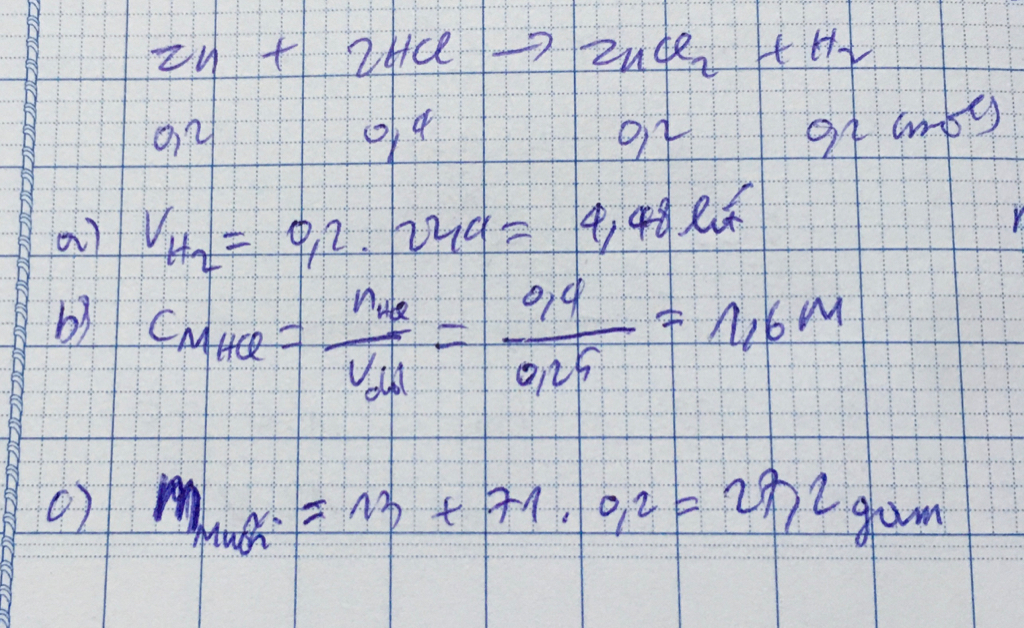 Zn + 2HCl → ZnCl₂ + H₂
0,2 0,4 0,2 0,2 (mol)
a) V_H₂ = 0,2 . 22,4 = 4,48 lít
b) C_M HCl = n_HCl / V_dd = 0,4 / 0,25 = 1,6 M
c) m_muối = 13 + 71 . 0,2 = 27,2 gam